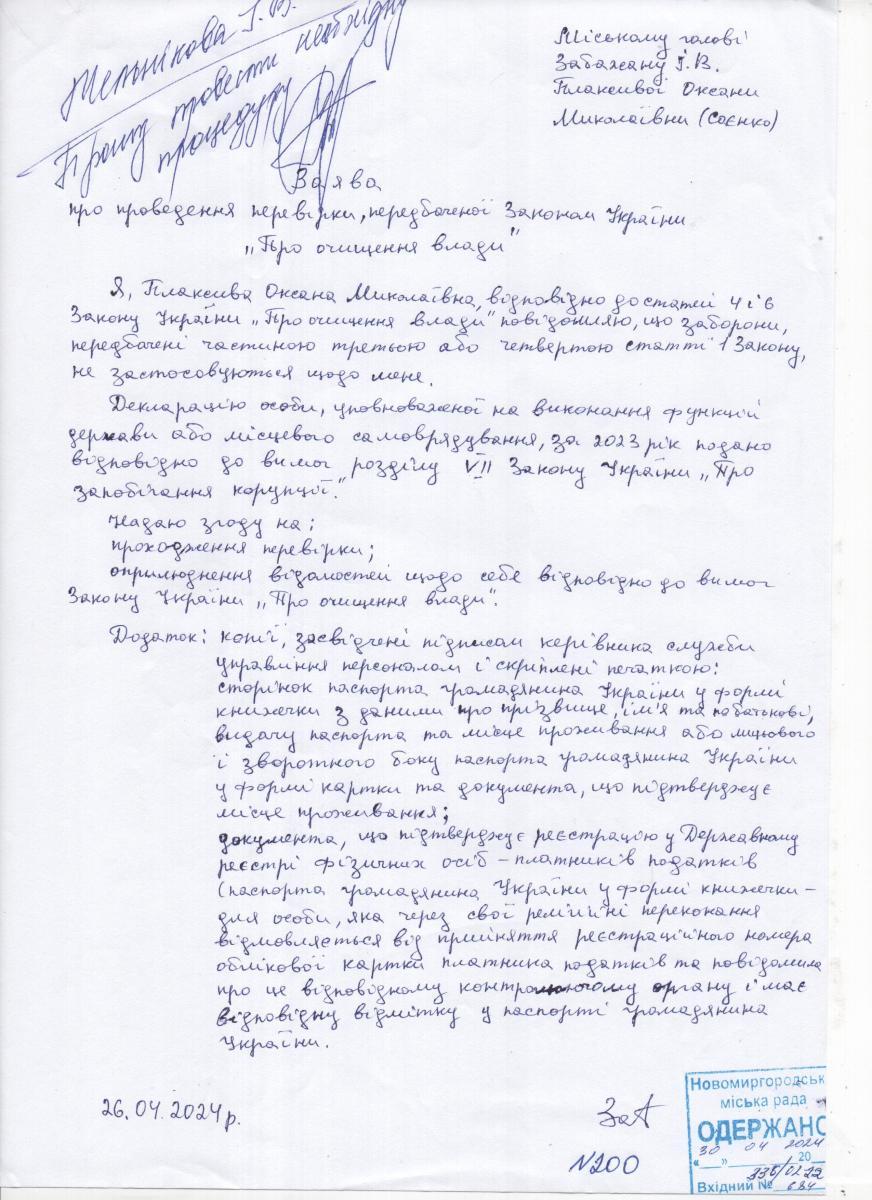 Мельнікова І.В.
Прошу провести необхідну
процедуру
Міському голові
Забажану І.В.
Плаксивої Оксани
Миколаївни (Саєнко)
Заява
про проведення перевірки, передбаченої Законом України
„Про очищення влади"
Я, Плаксива Оксана Миколаївна, відповідно до статей 4 і 6
Закону України „Про очищення влади" повідомляю, що заборони,
передбачені частиною третьою або четвертою статті 1 Закону,
не застосовуються щодо мене.
Декларацію особи, уповноваженої на виконання функцій
держави або місцевого самоврядування, за 2023 рік подано
відповідно до вимог розділу VII Закону України „Про
запобігання корупції."
Надаю згоду на:
проходження перевірки;
оприлюднення відомостей щодо себе відповідно до вимог
Закону України „Про очищення влади".
Додаток: копії, засвідчені підписом керівника служби
управління персоналом і скріплені печаткою:
сторінок паспорта громадянина України у формі
книжечки з даними про прізвище, ім'я та побатькові,
видачу паспорта та місце проживання або лицьового
і зворотного боку паспорта громадянина України
у формі картки та документа, що підтверджує
місце проживання;
документа, що підтверджує реєстрацію у Державному
реєстрі фізичних осіб – платників податків
(паспорта громадянина України у формі книжечки –
для особи, яка через свої релігійні переконання
відмовляється від прийняття реєстраційного номера
облікової картки платника податків та повідомила
про це відповідному контролюючому органу і має
відповідну відмітку у паспорті громадянина
України.
26.04.2024 р.
N200
Новомиргородськ
міська рада
ОДЕРЖАНО
«30» 04 2024 20
335/01-22
Вхідний № 684